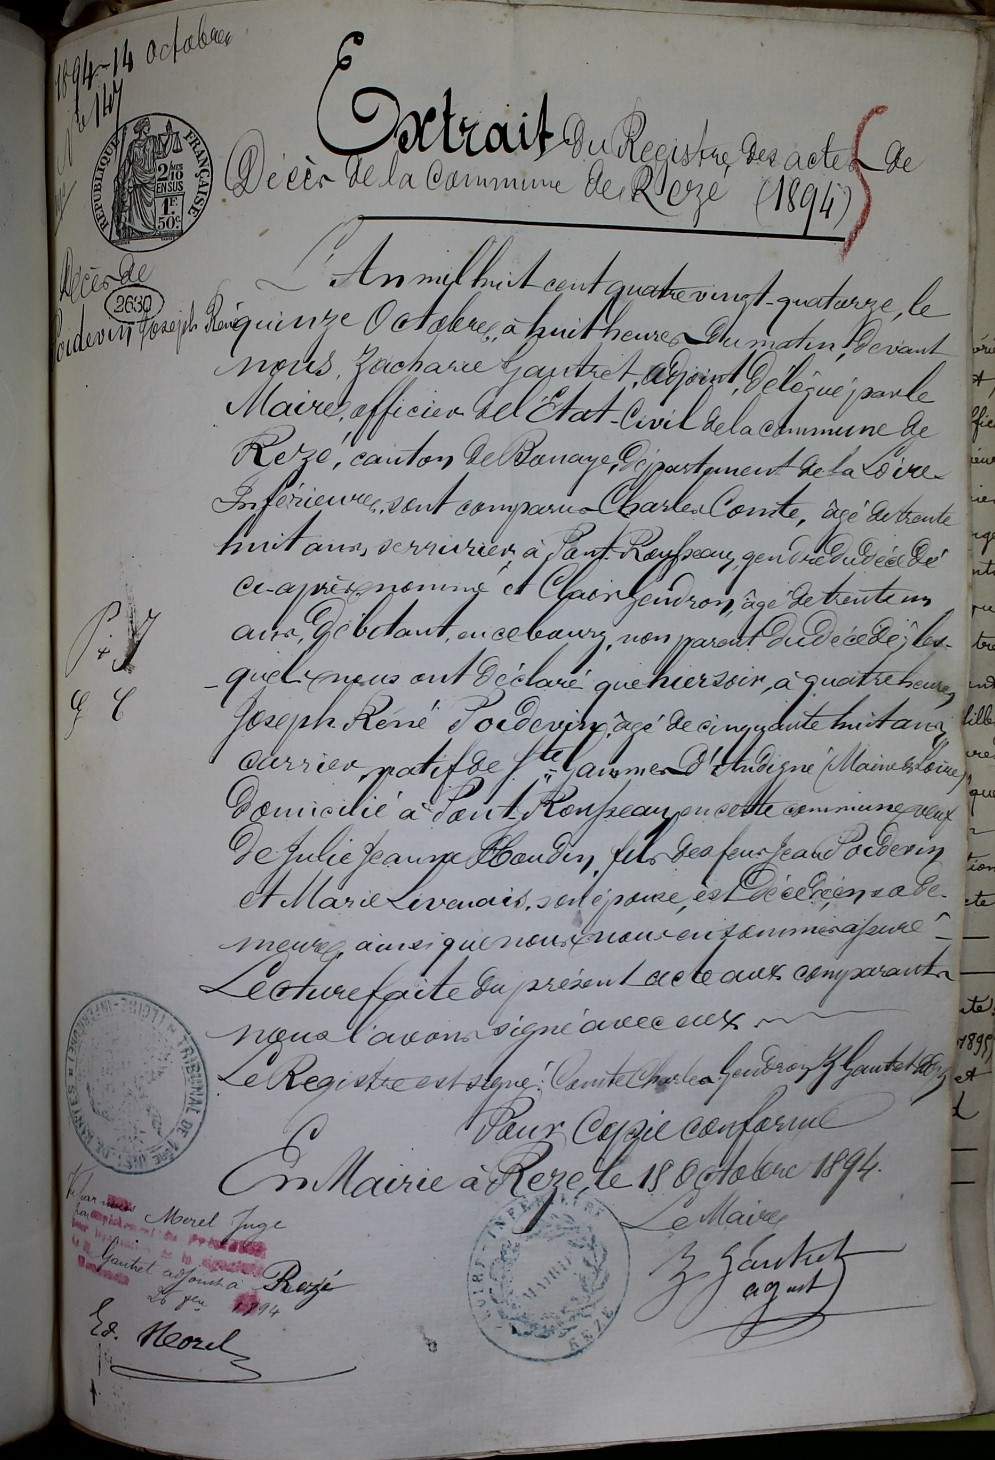 1894-14 Octobre
No 147
Extrait du Registre des actes de
Décès de la Commune de Rezé (1894)
RÉPUBLIQUE FRANÇAISE
2/10 EN SUS
1F. 50c
Décès de
2630
Poidevin Joseph Réné
L'An mil huit cent quatre vingt-quatorze, le
quinze Octobre, à huit heures du matin, devant
nous, Zacharie Gautret, adjoint, délégué par le
Maire, officier de l'État-Civil de la commune de
Rezé, canton de Bouaye, département de la Loire-
Inférieure, sont comparus Charles Comte, âgé de trente
huit ans, serrurier, à Pont-Rousseau, gendre du décédé
ci-après nommé et Clair Gendron, âgé de trente un
ans, débitant, en ce bourg, non parent du décédé, les-
-quels nous ont déclaré que hier soir, à quatre heures,
Joseph Réné Poidevin, âgé de cinquante huit ans,
carrier, natif de Ste Gemmes d'Andigné (Maine & Loire),
domicilié à Pont-Rousseau, en cette commune, veuf
de Julie Jeanne Houdin, fils des feus Jean Poidevin
et Marie Livenais, son épouse, est décédé, en sa de-
meure, ainsi que nous nous en sommes assuré -
Lecture faite du présent acte aux comparants
nous l'avons signé avec eux
Le Registre est signé: Comte Charles Gendron Z Gautret
Pour Copie conforme
En Mairie à Rezé, le 18 Octobre 1894.
Le Maire
Z Gautret
adjoint
TRIBUNAL DE 1ère INST. DE NANTES (LOIRE-INFÉRIEURE)
LOIRE-INFÉRIEURE
MAIRIE
REZÉ
Vu par nous Morel Juge
Gautret adjoint à Rezé
Ed. Morel